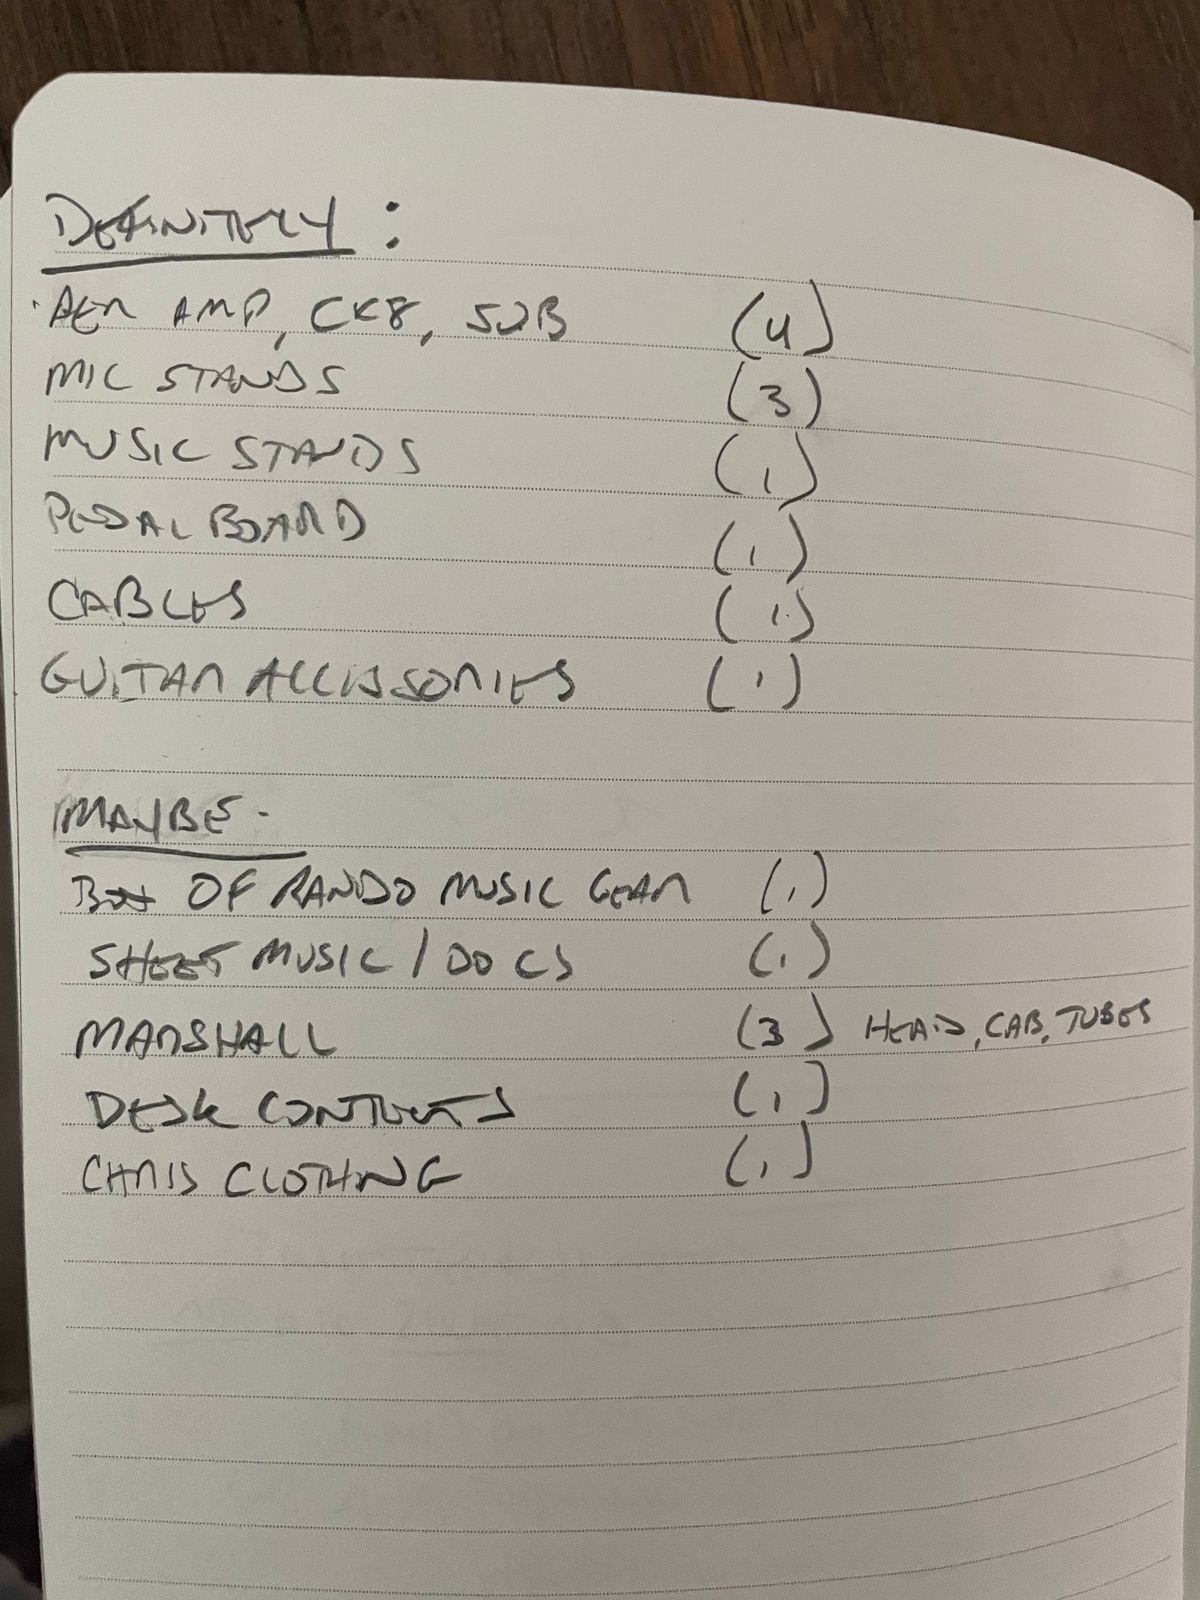 DEFINITELY:
AER AMP, CK8, SUB (4)
MIC STANDS (3)
MUSIC STANDS (1)
PEDAL BOARD (1)
CABLES (1)
GUITAR ACCISSORIES (1)
MAYBE-
BOX OF RANDO MUSIC GEAR (1)
SHEET MUSIC / DOCS (1)
MARSHALL (3) HEAD, CAB, TUBES
DESK CONTENTS (1)
CHRIS CLOTHING (1)